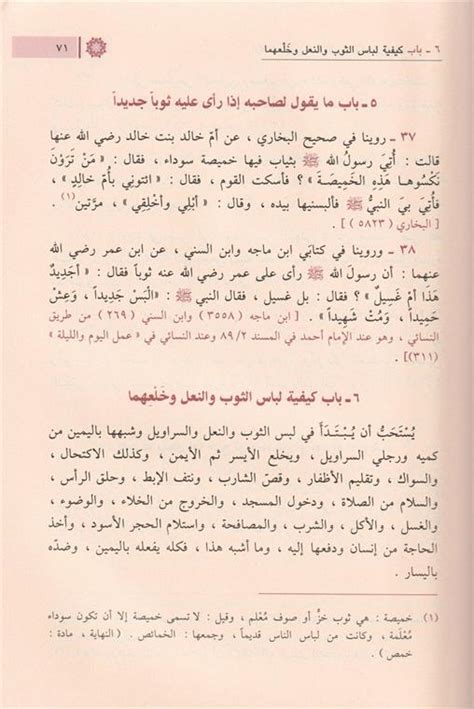 ٦ - باب كيفية لباس الثوب والنعل وخَلْعِهما
٧١
٥ - باب ما يقول لصاحبه إذا رأى عليه ثوباً جديداً
٣٧ - روينا في صحيح البخاري ، عن أمّ خالد بنت خالد رضي الله عنها
قالت : أُتِيَ رسولُ الله ﷺ بثياب فيها خميصة سوداء ، فقال : « مَنْ تَرَوْنَ
نَكْسُوهـا هَذِهِ الخَمِيصَةَ » ؟ فأسكت القوم ، فقال : « ائتوني بأُم خالدٍ » ،
فَأُتِيَ بيَ النبيُّ ﷺ فألبسنيها بيده ، وقال : « أَبْلِي وأَخْلِقِي » ، مرَّتين(١) .
[ البخاري ( ٥٨٢٣ ) ] .
٣٨ - وروينا في كتابَي ابن ماجه وابن السني ، عن ابن عمر رضي الله
عنهما : أن رسولَ الله ﷺ رأى على عمر رضي الله عنه ثوباً فقال : « أجَدِيدٌ
هَذَا أمْ غَسِيلٌ » ؟ فقال : بل غسيل ، فقال النبي ﷺ : « الْبَسْ جَدِيداً ، وَعِشْ
حَمِيداً ، وَمُتْ شَهِيداً » . [ ابن ماجه ( ٣٥٥٨ ) وابن السني ( ٢٦٩ ) من طريق
النسائي ، وهو عند الإمام أحمد في المسند ٨٩/٢ وعند النسائي في « عمل اليوم والليلة »
(٣١١)] .
٦ - باب كيفية لباس الثوب والنعل وخَلْعِهما
يُسْتَحَبُّ أن يُبْتَـدَأَ في لبس الثوب والنعل والسراويل وشبهها باليمين من
كميه ورجلي السراويل ، ويخلع الأيسر ثم الأيمن ، وكذلك الاكتحال ،
والسواك ، وتقليم الأظفار ، وقصّ الشارب ، ونتف الإبط ، وحلق الرأس ،
والسلام من الصلاة ، ودخول المسجد ، والخروج من الخلاء ، والوضوء ،
والغسل ، والأكل ، والشرب ، والمصافحة ، واستلام الحجر الأسود ، وأخذ
الحاجة من إنسان ودفعها إليه ، وما أشبه هذا ، فكله يفعله باليمين ، وضدّه
باليسار .
(١) خميصة : هي ثوب خزُّ أو صوف مُعْلَم ، وقيل : لا تسمى خميصة إلا أن تكون سوداء
مُعْلَمة ، وكانت من لباس الناس قديماً ، وجمعها : الخمائص . ( النهاية ، مادة :
خمص ) .